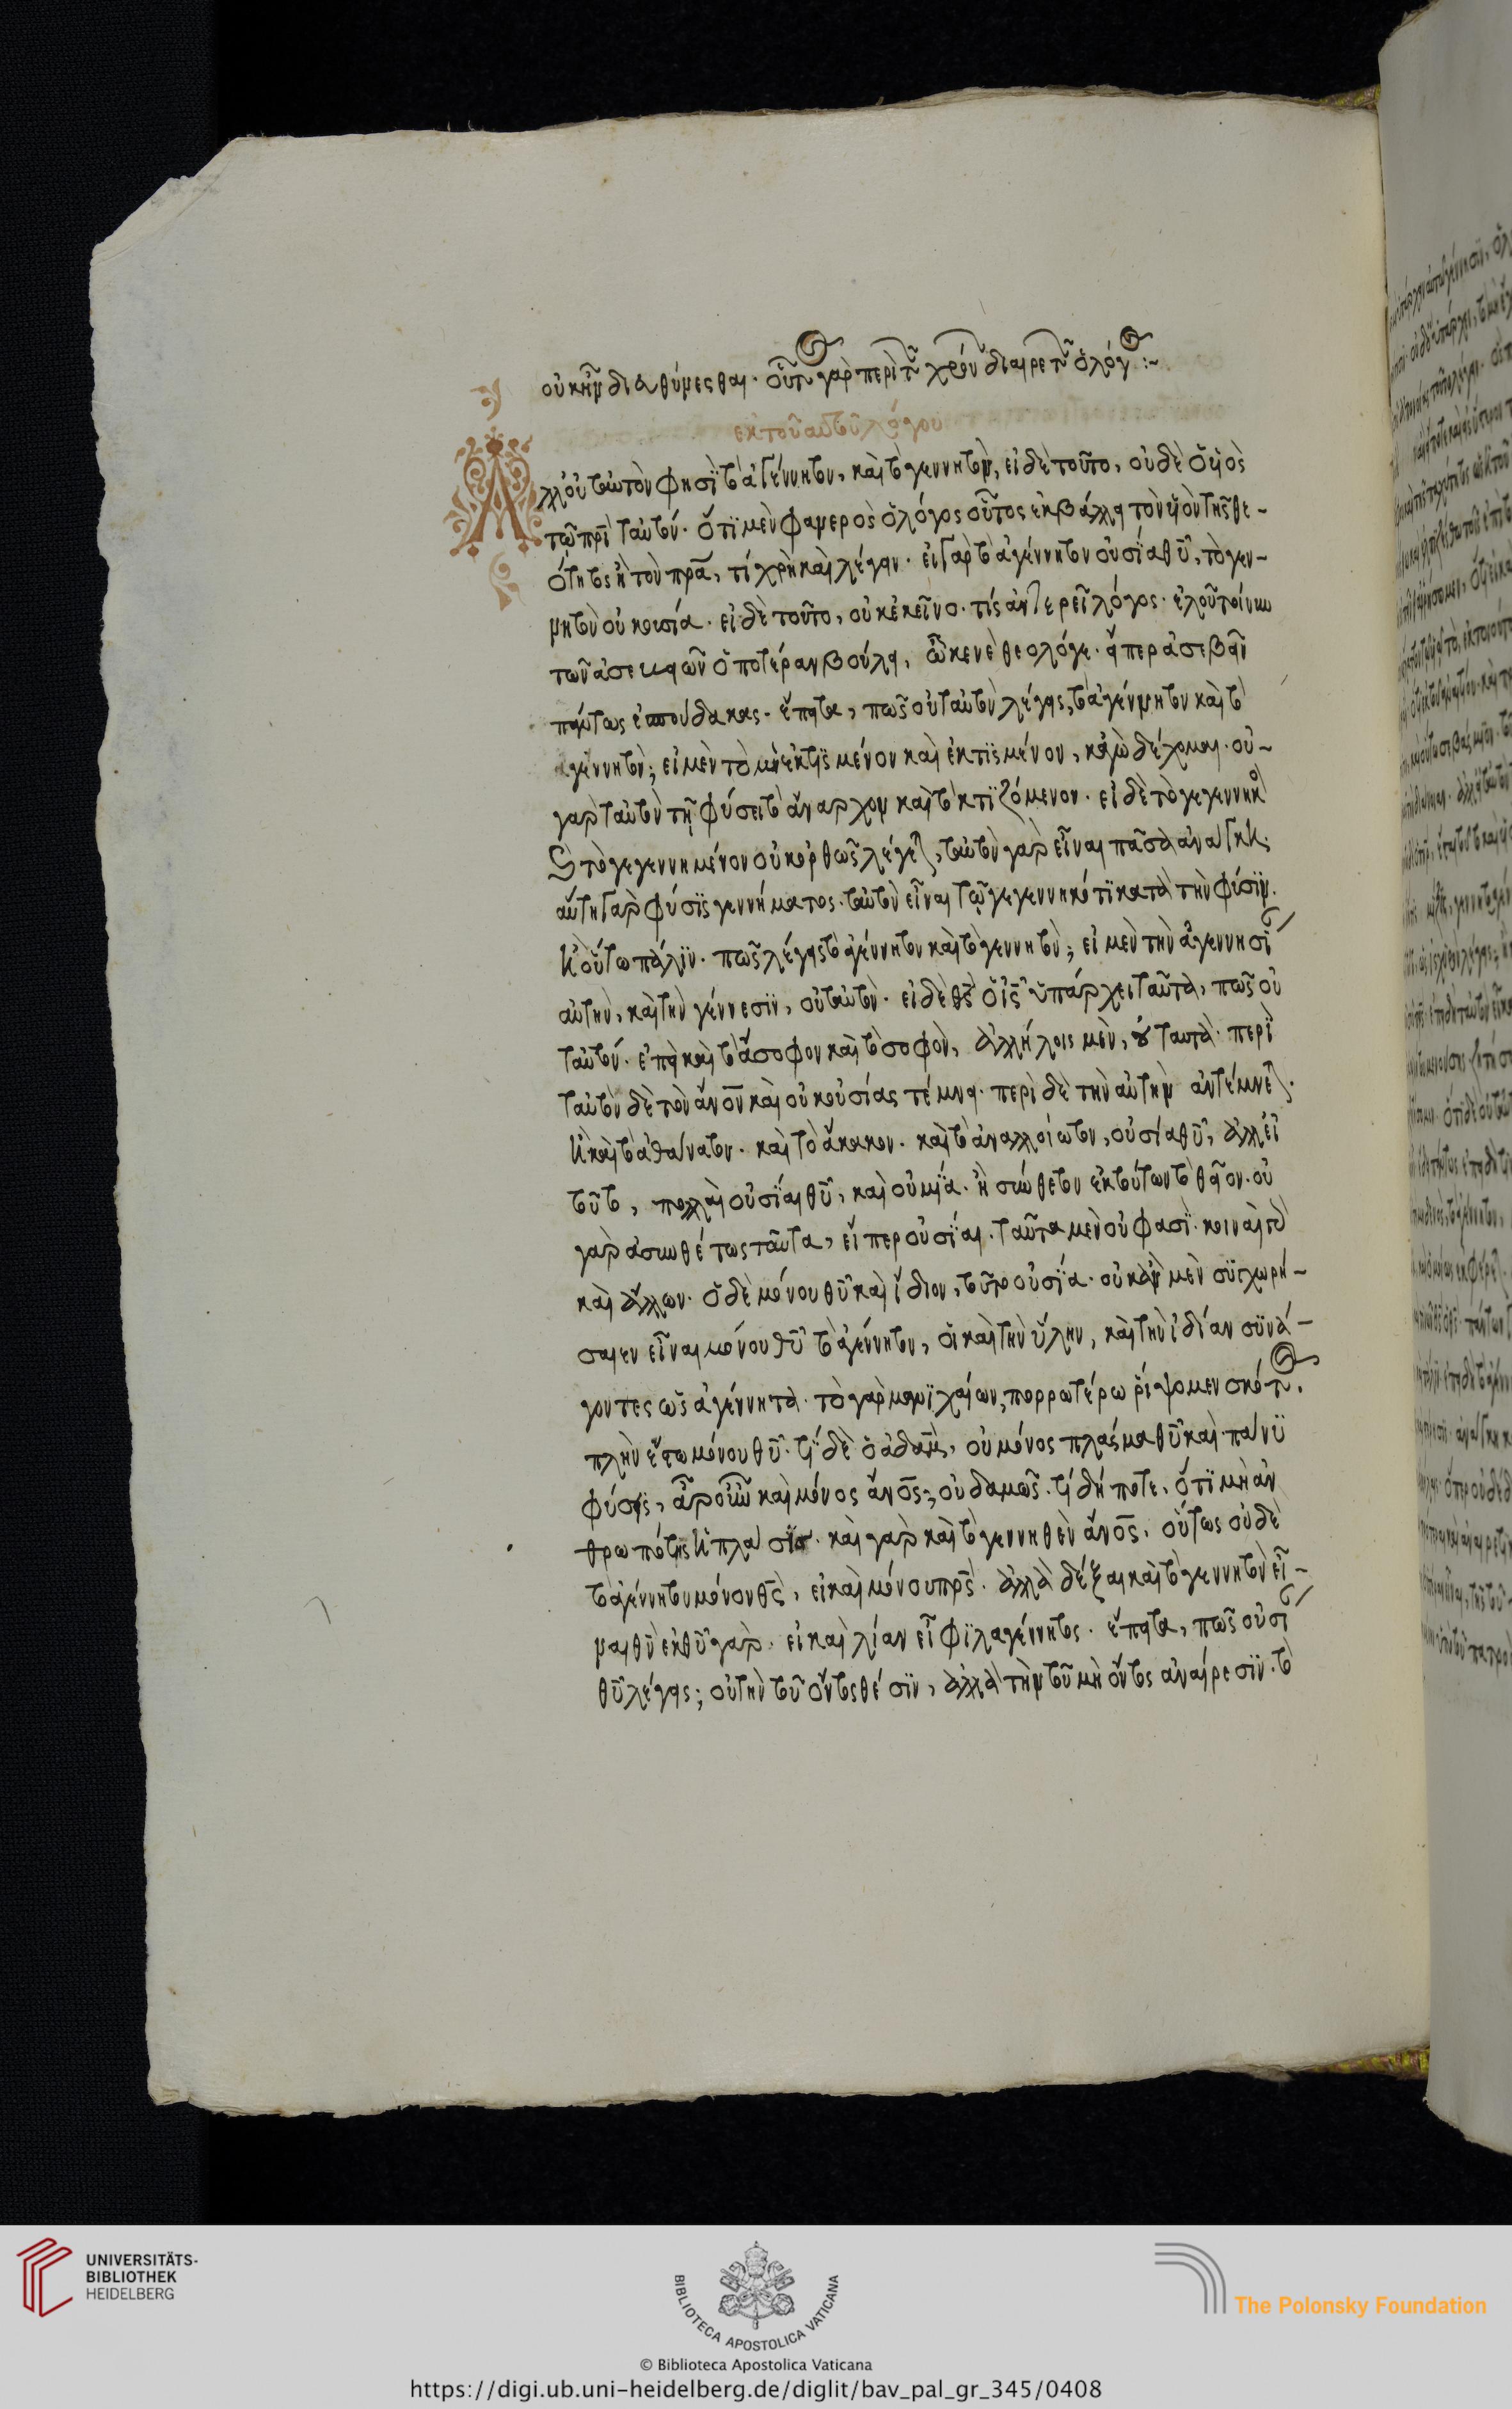 οὐκ ἦν διαθύμεσθαι. οὗτο γὰρ περὶ τοῦ χρόνου διαιρετοῦ ὁ λόγος :~
ἐκ τοῦ αὐτοῦ λόγου
Ἀλλ' οὐ ταὐτὸν φησὶ τὸ ἀγέννητον, καὶ τὸ γεννητὸν, εἰ δὲ τοῦτο, οὐδὲ ὁ υἱὸς
τῶ πρὶ ταὐτόν. ὅτι μὲν φανερὸς ὁ λόγος οὗτος ἐκβάλλει τὸν υἱὸν τῆς θε-
ότητος ἢ τὸν πρα, τί χρὴ καὶ λέγειν. εἰ γὰρ τὸ ἀγέννητον οὐσία θυ, τὸ γεν-
νητὸν οὐκ οὐσία. εἰ δὲ τοῦτο, οὐκ ἐκεῖνο. τίς ἀντερεῖ λόγος. ἑλοῦ τοίνυν
τῶν ἀσεβειῶν ὁποτέραν βούλει, ὦ κενὲ θεολόγε. εἴπερ ἀσεβεῖν
πάντως ἐσπούδακας. ἔπειτα, πῶς οὐ ταὐτὸν λέγεις, τὸ ἀγέννητον καὶ τὸ
γεννητὸν; εἰ μὲν τὸ μὴ ἐκτισμένον καὶ ἐκτισμένον, κἀγὼ δέχομαι. οὐ-
γὰρ ταὐτὸν τῆ φύσει τὸ ἄναρχον καὶ τὸ κτιζόμενον. εἰ δὲ τὸ γεγεννηκὸς
καὶ τὸ γεγεννημένον οὐκ ὀρθῶς λέγεται, ταὐτὸν γὰρ εἶναι πᾶσα ἀνάγκη.
αὕτη γὰρ φύσις γεννήματος. ταὐτὸν εἶναι τῶ γεγεννηκότι κατὰ τὴν φύσιν.
ἢ οὕτω πάλιν. πῶς λέγεις τὸ ἀγέννητον καὶ τὸ γεννητὸν; εἰ μὲν τὴν ἀγεννησίαν
αὐτὴν, καὶ τὴν γέννεσιν, οὐ ταὐτὸν. εἰ δὲ θς οἷς ὑπάρχει ταῦτα, πῶς οὐ
ταὐτόν. ἐπεὶ καὶ τὸ ἄσοφον καὶ τὸ σοφὸν, ἀλλήλοις μὲν, οὐ ταυτὰ. περὶ
ταὐτὸν δὲ τὸν ἄνον καὶ οὐκ οὐσίας τέμνει. περὶ δὲ τὴν αὐτὴν ἀντέμνεται.
ἢ καὶ τὸ ἀθάνατον. καὶ τὸ ἄκακον. καὶ τὸ ἀναλλοίωτον, οὐσία θυ, ἀλλ' εἰ
τοῦτο, πολλαὶ οὐσίαι θυ, καὶ οὐ μία. ἢ σύνθετον ἐκ τούτων τὸ θεῖον. οὐ
γὰρ ἀσυνθέτως ταῦτα, εἴπερ οὐσίαι. ταῦτα μὲν οὔ φασι. κοινὰ γὰρ
καὶ ἄλλων. ὃ δὲ μόνου θυ καὶ ἴδιον, τοῦτο οὐσία. οὐκ ἂν μὲν συγχωρή-
σαιεν εἶναι μόνου θυ τὸ ἀγέννητον, οἱ καὶ τὴν ὕλην, καὶ τὴν ἰδίαν συνά-
γοντες ὡς ἀγέννητα. τὸ γὰρ μανιχαίων, πορρωτέρω ῥίψομεν σκότος.
πλὴν ἔστω μόνου θυ. τί δὲ ὁ ἀδαμ, οὐ μόνος πλάσμα θυ καὶ πάνυ
φύσις, ἆρ' οὖν καὶ μόνος ἄνος; οὐδαμῶς. τί δή ποτε, ὅτι μὴ ἀν
θρωπότης ἡ πλάσις. καὶ γὰρ καὶ τὸ γεννηθὲν ἄνος. οὕτως οὐδὲ
τὸ ἀγέννητον μόνον θς, εἰ καὶ μόνου πρς. ἀλλὰ δέξαι καὶ τὸ γεννητὸν εἶ-
ναι θυ ἐκ θυ γὰρ. εἰ καὶ λίαν εἶ φιλαγέννητος. ἔπειτα, πῶς οὐσίαν
θυ λέγεις; οὐ τὴν τοῦ ὄντος θέσιν, ἀλλὰ τὴν τοῦ μὴ ὄντος ἀναίρεσιν. τὸ
UNIVERSITÄTS-
BIBLIOTHEK
HEIDELBERG
BIBLIOTECA APOSTOLICA VATICANA
The Polonsky Foundation
© Biblioteca Apostolica Vaticana
https://digi.ub.uni-heidelberg.de/diglit/bav_pal_gr_345/0408